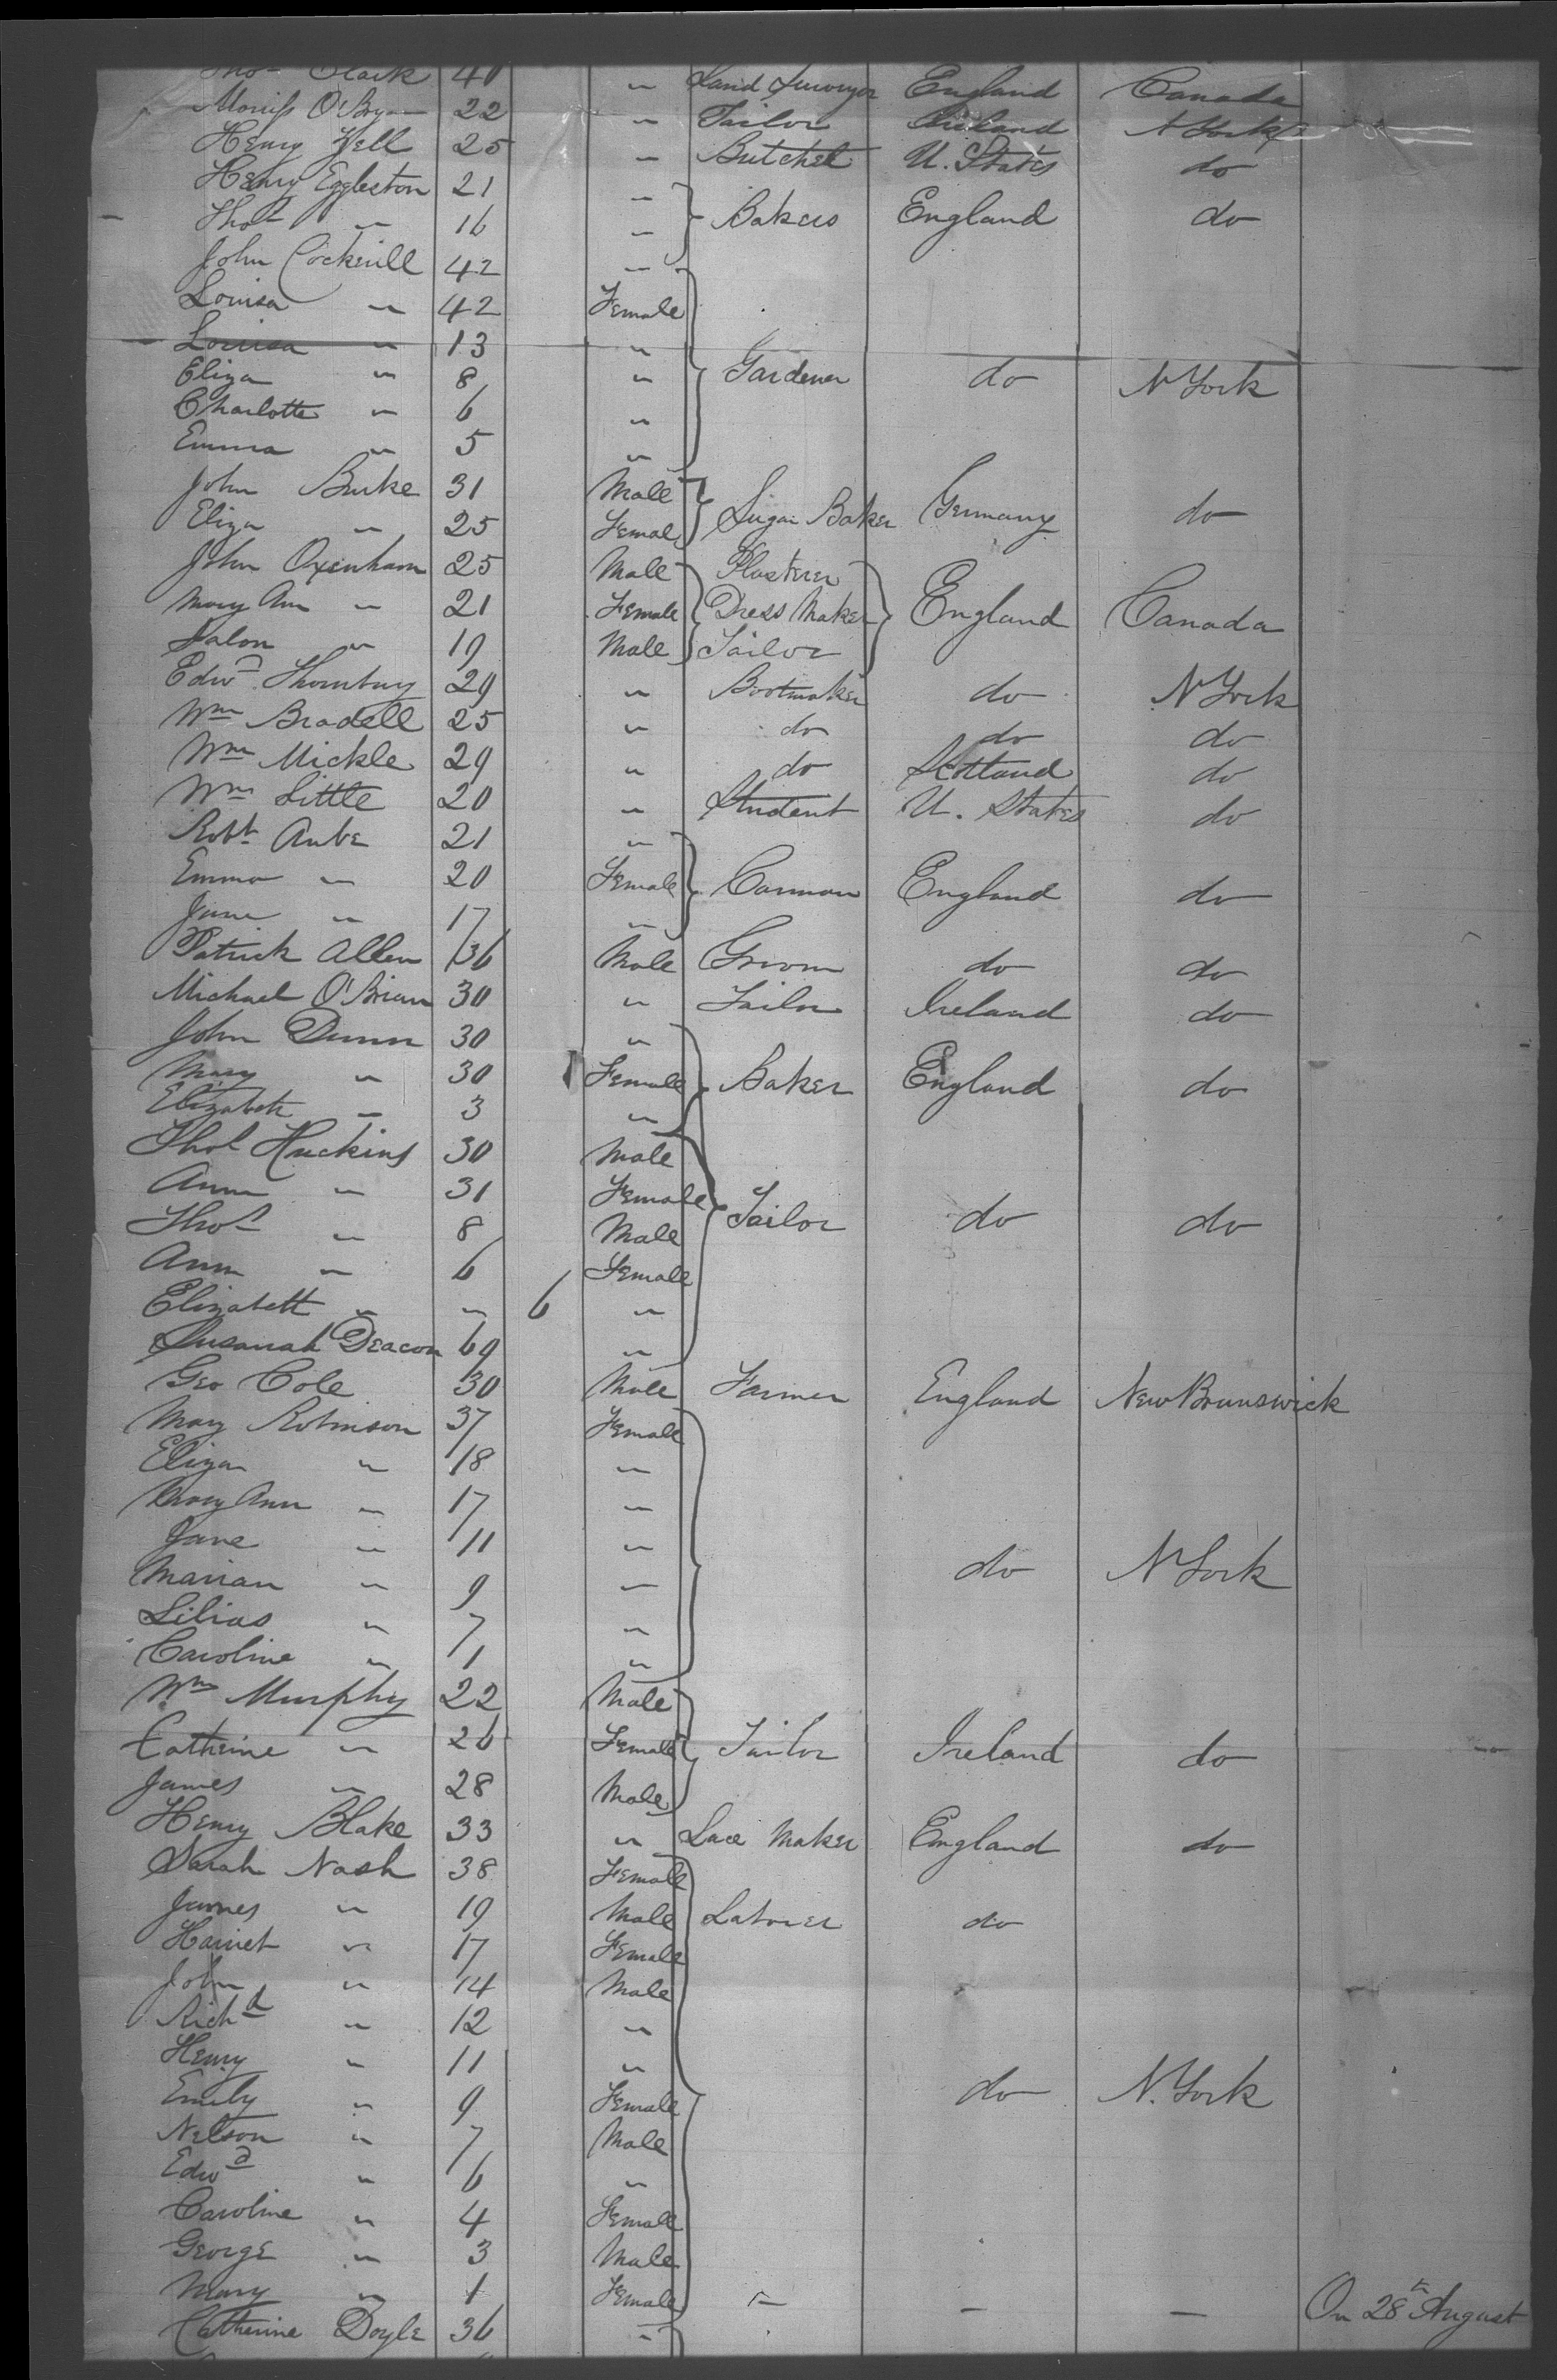 Thos Clark 40 " Land Surveyor England Canada
Moriss O'Bryan 22 " Tailor Ireland N York
Henry Yell 25 " Butcher U. States do
Henry Eggleston 21 "
Thos " 16 " Bakers England do
John Cockerill 42 "
Louisa " 42 Female
Louisa " 13 "
Eliza " 8 " Gardener do N York
Charlotte " 6 "
Emma " 5 "
John Burke 31 Male
Eliza " 25 Female Sugar Baker Germany do
John Oxenham 25 Male Plasterer
Mary Ann " 21 Female Dress Maker England Canada
Salon " 19 Male Tailor
Edwd Thornbury 29 " Bootmaker do N York
Wm Bradell 25 " do do do
Wm Mickle 29 " do Scotland do
Wm Little 20 " Student U. States do
Robt Aube 21 "
Emma " 20 Female Carman England do
Jane " 17 "
Patrick Allen 36 Male Groom do do
Michael O'Brian 30 " Tailor Ireland do
John Dunn 30 "
Mary " 30 Female Baker England do
Elizabeth " 3 "
Thos Huckins 30 Male
Ann " 31 Female
Thos " 8 Male Tailor do do
Ann " 6 Female
Elizabett " " 6 "
Susanah Deacon 69 "
Geo Cole 30 Male Farmer England New Brunswick
Mary Robinson 37 Female
Eliza " 18 "
Mary Ann " 17 "
Jane " 11 " do N York
Marian " 9 "
Lilias " 7 "
Caroline " 1 "
Wm Murphy 22 Male
Catherine " 26 Female Tailor Ireland do
James " 28 Male
Henry Blake 33 " Lace Maker England do
Sarah Nash 38 Female
James " 19 Male Laborer do
Harriet " 17 Female
John " 14 Male
Richd " 12 "
Henry " 11 "
Emily " 9 Female do N. York
Nelson " 7 Male
Edwd " 6 "
Caroline " 4 Female
George " 3 Male
Mary " 1 Female " — — On 28th August
Catherine Doyle 36 "